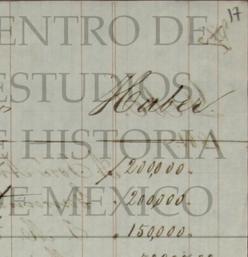 17
ENTRO DE
ESTUDIOS
Haber.
E HISTORIA
200,000.
DE MEXICO
200,000.
150,000.